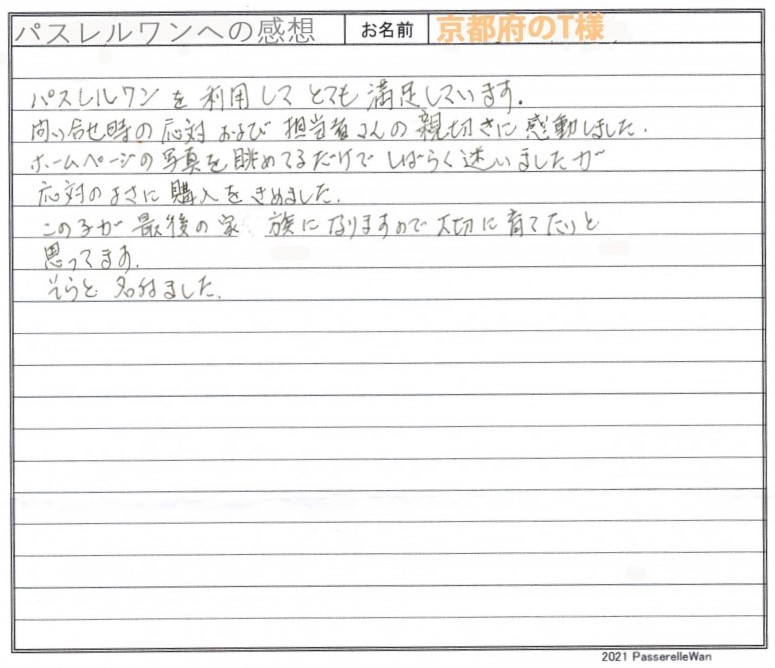 パスレルワンへの感想 お名前 京都府のT様
パスレルワンを利用してとても満足しています.
問い合せ時の応対および担当者さんの親切さに感動しました.
ホームページの写真を眺めてるだけでしばらく迷いましたが
応対のよさに購入をきめました.
この子が最後の家族になりますので大切に育てたいと
思ってます.
そらと名付ました.
2021 PasserelleWan